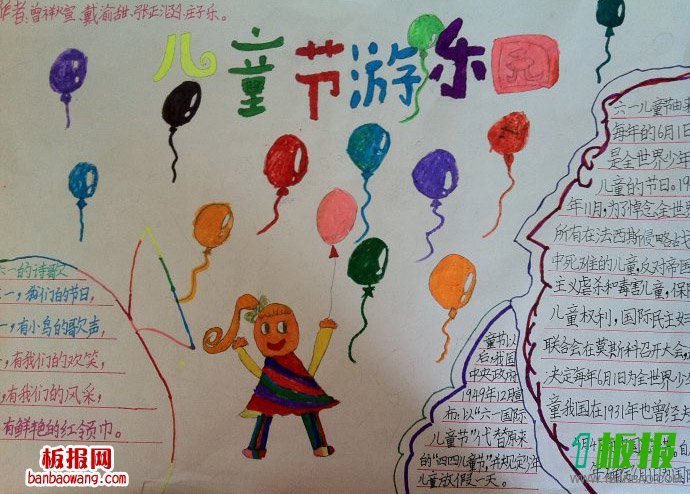 作者:曾祥煊、戴渝甜、张正涵、庄子乐。
儿童节游乐园
六一的诗歌
一,我们的节日,
一,有小鸟的歌声,
一,有我们的欢笑,
,有我们的风采,
有鲜艳的红领巾。
童节,以
后,我国
中央政府
1949年12月
布,以"六一国际
儿童节"代替原来
的"四四儿童节",并规定少年
儿童放假一天。
六一儿童节由来
每年的6月1日
是全世界少年
儿童的节日。19
年11月,为了悼念全世界
所有在法西斯侵略战
中死难的儿童,反对帝国
主义虐杀和毒害儿童,保障
儿童权利,国际民主妇
联合会在莫斯科召开大会,
决定每年6月1日为全世界少
童我国在1931年也曾经
年6月1日为国
板报网
banbaowang.com
板报